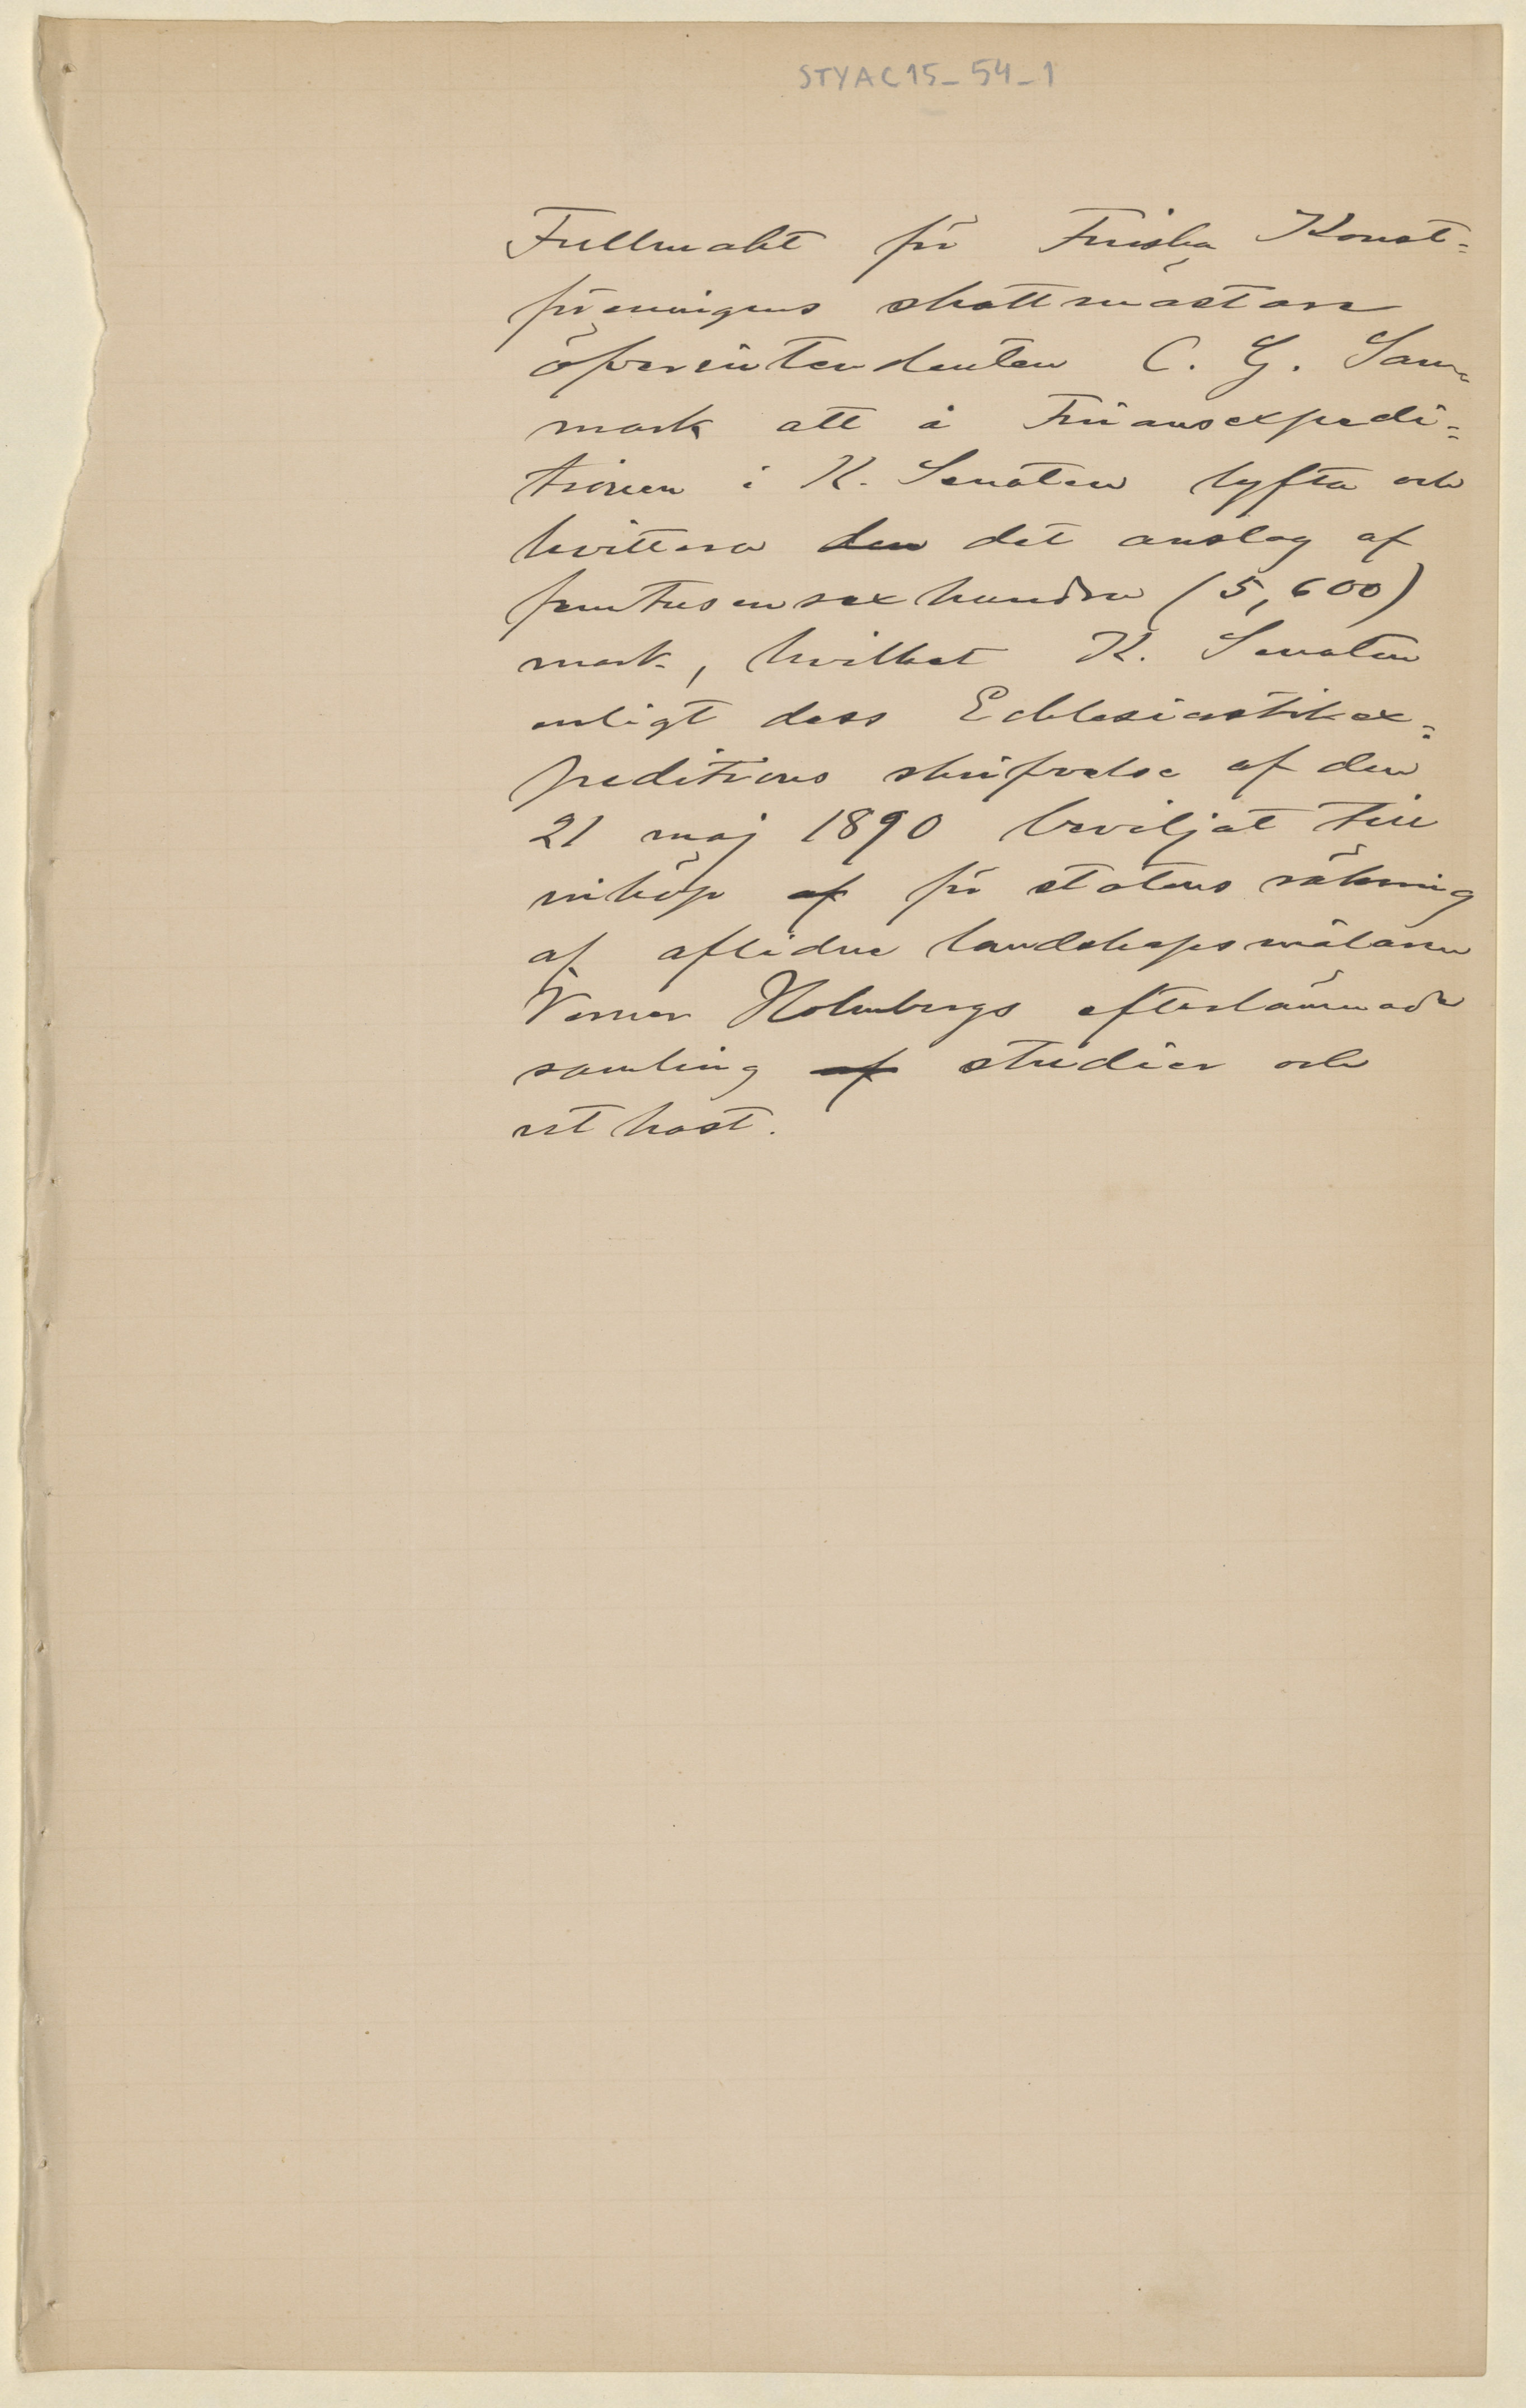 STYAC15_54_1
Fullmakt för Finska Konst=
föreningens skattmästare
öfverintendenten C. G. San=
mark att å Finansexpedi=
tionen i K. Senaten lyfta och
kvittera den det anslag af
femtusensexhundra (5,600)
mark, hvilket K. Senaten
enligt dess Ecklesiastikex=
peditions skrifvelse af den
21 maj 1890 beviljat till
inköp af för statens räkning
af aflidne landskapsmålaren
Verner Holmbergs efterlämnade
samling af studier och
utkast.